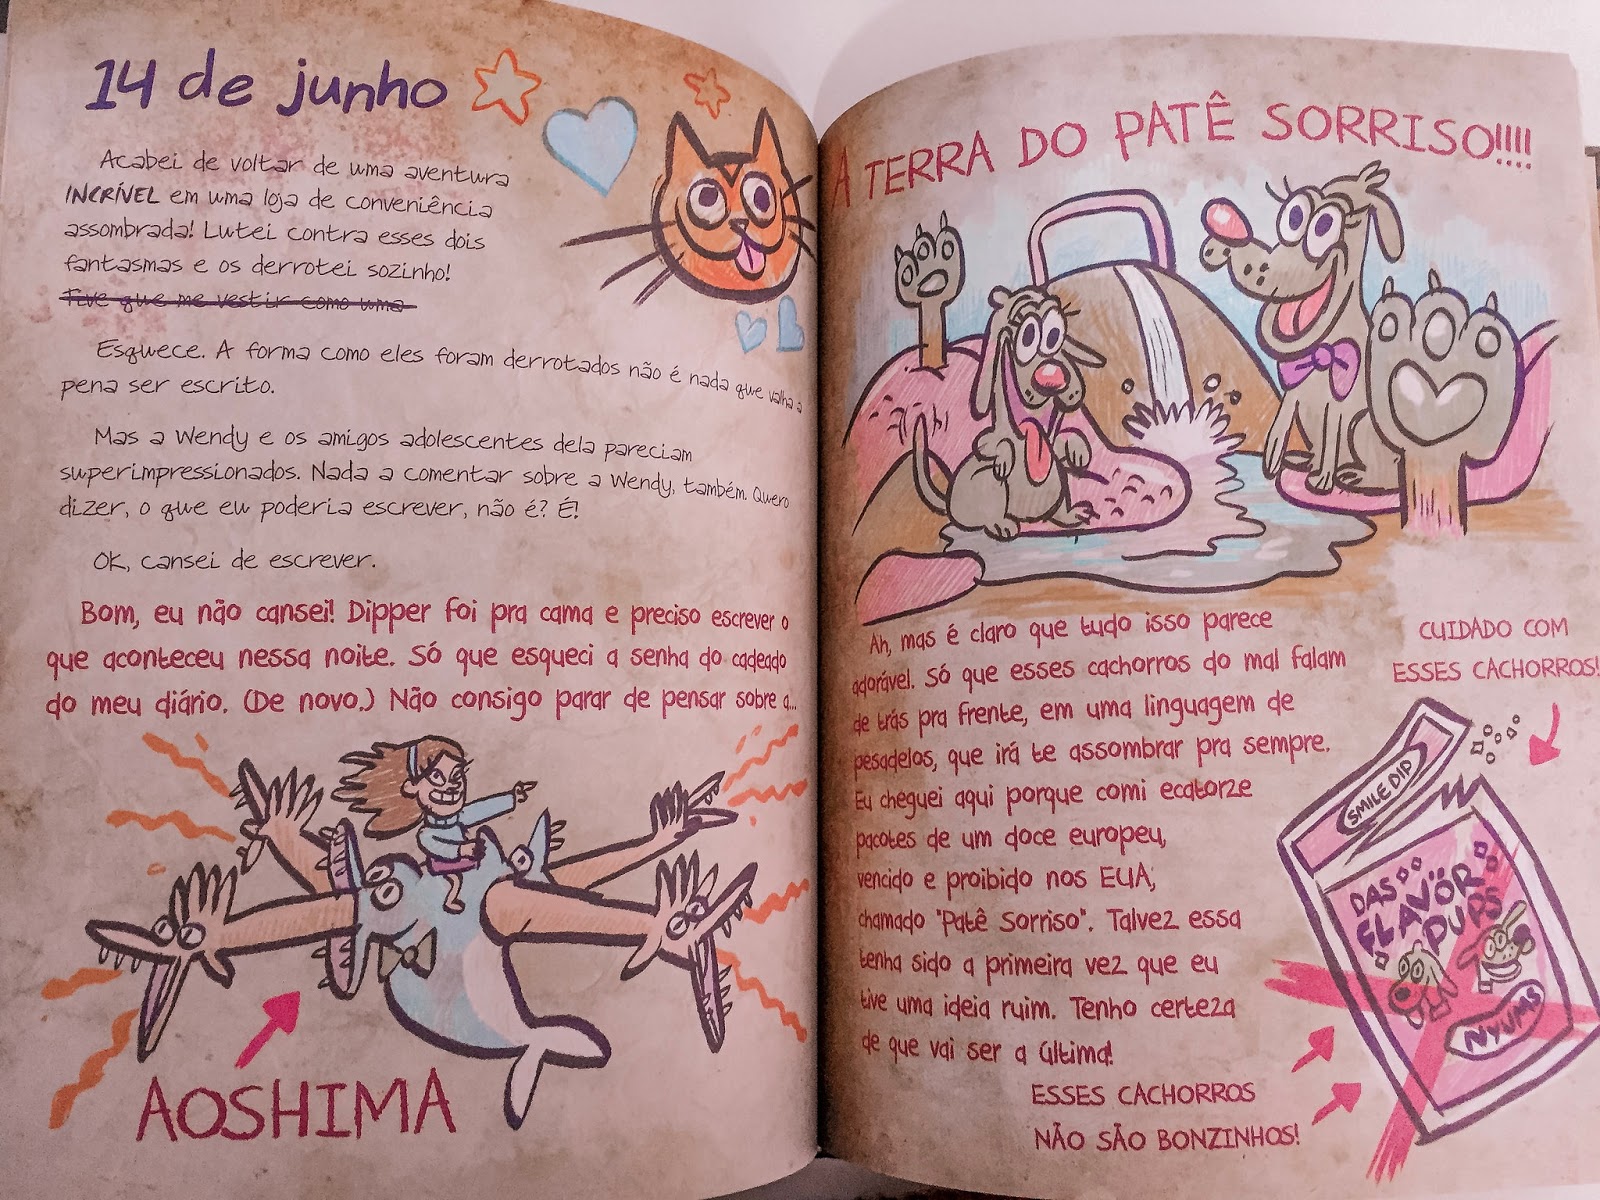 14 de junho
Acabei de voltar de uma aventura
INCRÍVEL em uma loja de conveniência
assombrada! Lutei contra esses dois
fantasmas e os derrotei sozinho!
Tive que me vestir como uma
Esquece. A forma como eles foram derrotados não é nada que valha a
pena ser escrito.
Mas a Wendy e os amigos adolescentes dela pareciam
superimpressionados. Nada a comentar sobre a Wendy, também. Quero
dizer, o que eu poderia escrever, não é? É!
OK, cansei de escrever.
Bom, eu não cansei! Dipper foi pra cama e preciso escrever o
que aconteceu nessa noite. Só que esqueci a senha do cadeado
do meu diário. (De novo.) Não consigo parar de pensar sobre a...
AOSHIMA
A TERRA DO PATÊ SORRISO!!!!
Ah, mas é claro que tudo isso parece
adorável. Só que esses cachorros do mal falam
de trás pra frente, em uma linguagem de
pesadelos, que irá te assombrar pra sempre.
Eu cheguei aqui porque comi ecatorze
pacotes de um doce europeu,
vencido e proibido nos EUA,
chamado "Patê Sorriso". Talvez essa
tenha sido a primeira vez que eu
tive uma ideia ruim. Tenho certeza
de que vai ser a última!
CUIDADO COM
ESSES CACHORROS!
SMILE DIP
DAS
FLAVÖR
PUPS
NYUMS
ESSES CACHORROS
NÃO SÃO BONZINHOS!